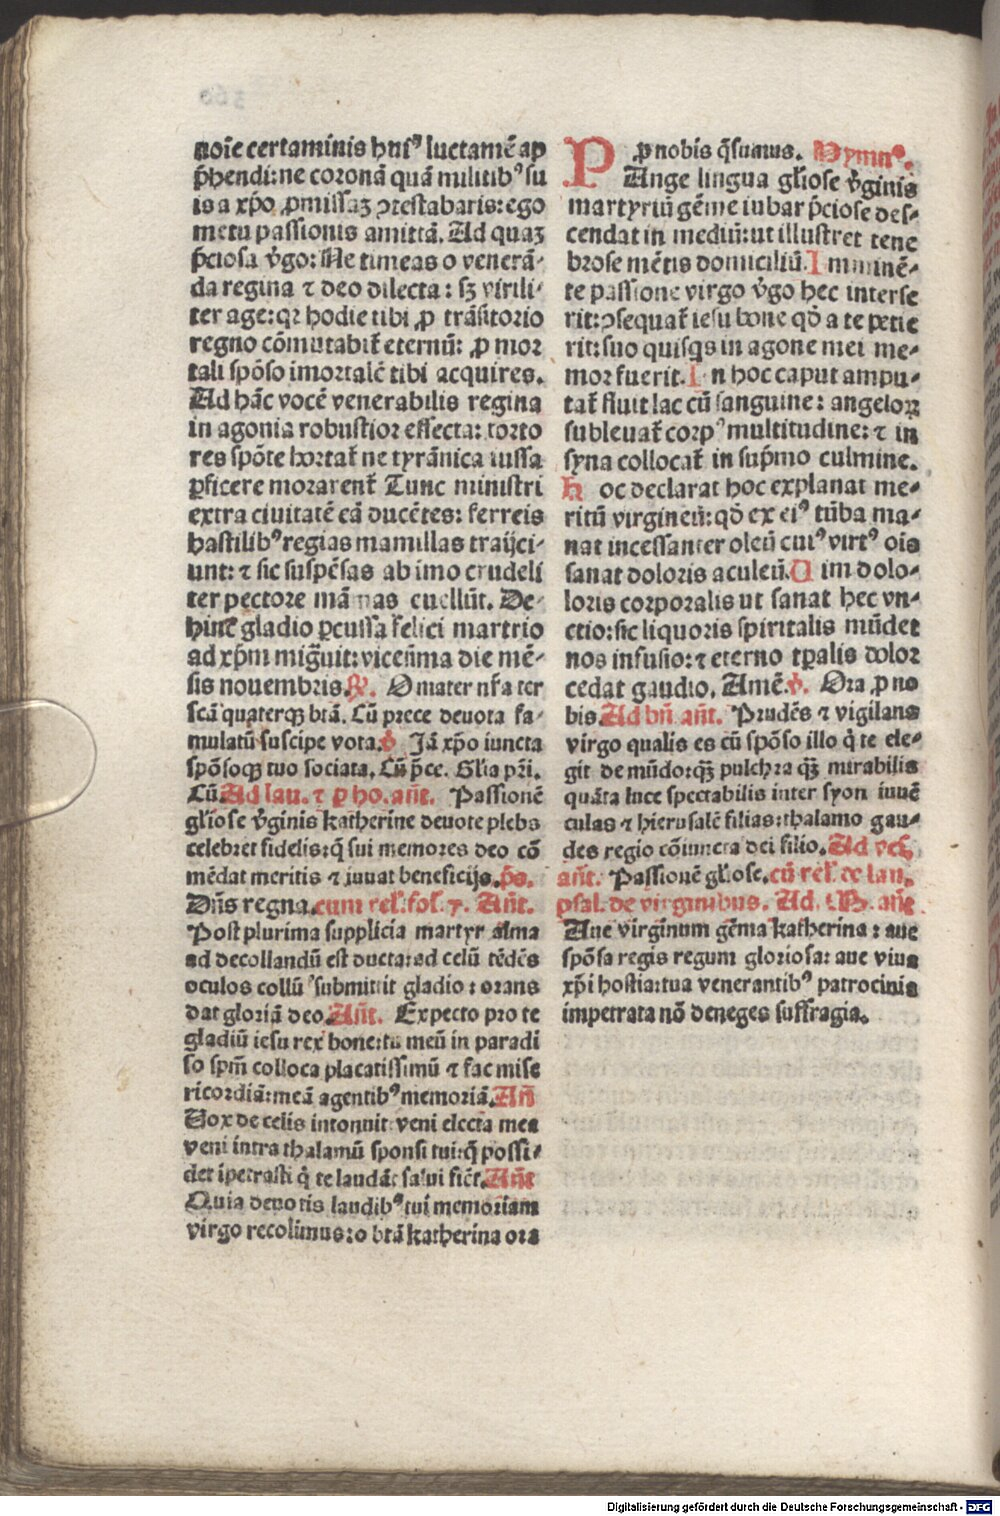 noīe certaminis huiꝰ luctamē ap
p̄hendi: ne coronā quā militibꝰ su
is a xp̄o ꝓmissaꝫ ↄtestabaris: ego
metu passionis amittā. Ad quaꝫ
p̄ciosa v̄go: Ne timeas o venerā⸗
da regina ⁊ deo dilecta: sꝫ virili⸗
ter age: qꝛ hodie tibi ꝓ trāsitorio
regno cōmutabit᷑ eternū: ꝓ mor
tali spōso imortalē tibi acquires.
Ad hāc vocē venerabilis regina
in agonia robustior effecta: torto
res spōte hortat᷑ ne tyrānica iussa
ꝑficere morarent᷑ Tunc ministri
extra ciuitatē eā ducētes: ferreis
hastilibꝰ regias mamillas traijci⸗
unt: ⁊ sic suspēsas ab imo crudeli
ter pectore māmas euellūt. De⸗
hinc gladio ꝑcussa felici martrio
ad xp̄m migͣuit: vicesima die mē⸗
sis nouembris. ℟. O mater nr̄a ter
scā quaterqꝫ btā. Cū prece deuota fa⸗
mulatū suscipe vota. ℣ Jā xp̄o iuncta
spōsoqꝫ tuo sociata. Cū p̄ce. Glia pr̄i.
Cū. Ad lau. ⁊ ꝑ ho. an̄t. Passionē
gl̄iose v̄ginis katherine deuote plebs
celebret fidelis: q̄ sui memores deo cō
mēdat meritis ⁊ iuuat beneficijs. p̄s.
Dn̄s regna. cum rel̄. fol̄. 7. An̄t.
Post plurima supplicia martyr alma
ad decollandū est ducta: ad celū tēdēs
oculos collū submittit gladio: orans
dat gloriā deo. An̄t. Expecto pro te
gladiū iesu rex bone: tu meū in paradi
so spm̄ colloca placatissimū ⁊ fac mise
ricordiā: meā agentibꝰ memoriā. An̄
Vox de celis intonuit: veni electa mea
veni intra thalamū sponsi tui: q̄ possi⸗
det īpetrasti q̄ te laudāt salui fiēt. An̄t
Quia deuotis laudibꝰ tui memoriam
virgo recolimus: o btā katherina ora
ꝓ nobis q̄sumus. Hymnꝰ.
PAnge lingua gl̄iose v̄ginis
martyriū gēme iubar p̄ciose des⸗
cendat in mediū: ut illustret tene
brose mētis domiciliū. Imminē⸗
te passione virgo v̄go hec interse
rit: ↄsequat᷑ iesu bone qd̄ a te petie
rit: suo quisqs in agone mei me⸗
mor fuerit. In hoc caput ampu⸗
tat᷑ fluit lac cū sanguine: angeloꝝ
subleuat᷑ corpꝰ multitudine: ⁊ in
syna collocat᷑ in sup̄mo culmine.
Hoc declarat hoc explanat me⸗
ritū virgineū: qd̄ ex eiꝰ tūba ma⸗
nat incessanter oleū cuiꝰ virtꝰ oīs
sanat doloris aculeū. Vim dolo⸗
loris corporalis ut sanat hec vn⸗
ctio: sic liquoris spiritalis mūdet
nos infusio: ⁊ eterno tꝑalis dolor
cedat gaudio. Amē. ℣. Ora ꝓ no
bis. Ad bn̄ an̄t. Prudēs ⁊ vigilans
virgo qualis es cū spōso illo q̇ te ele⸗
git de mūdo: qꝫ̄ pulchra qꝫ̄ mirabilis
quāta luce spectabilis inter syon iuuē
culas ⁊ hierusalē filias: thalamo gau⸗
des regio cōiuncta dei filio. Ad vesp̄.
an̄t. Passionē gl̄iose. cū rel̄. de lau.
psal. de virginibus. Ad. ı. ℟. an̄t
Aue virginum gēma katherina: aue
spōsa regis regum gloriosa: aue viua
xp̄i hostia: tua venerantibꝰ patrocinia
impetrata nō deneges suffragia.
Digitalisierung gefördert durch die Deutsche Forschungsgemeinschaft - DFG